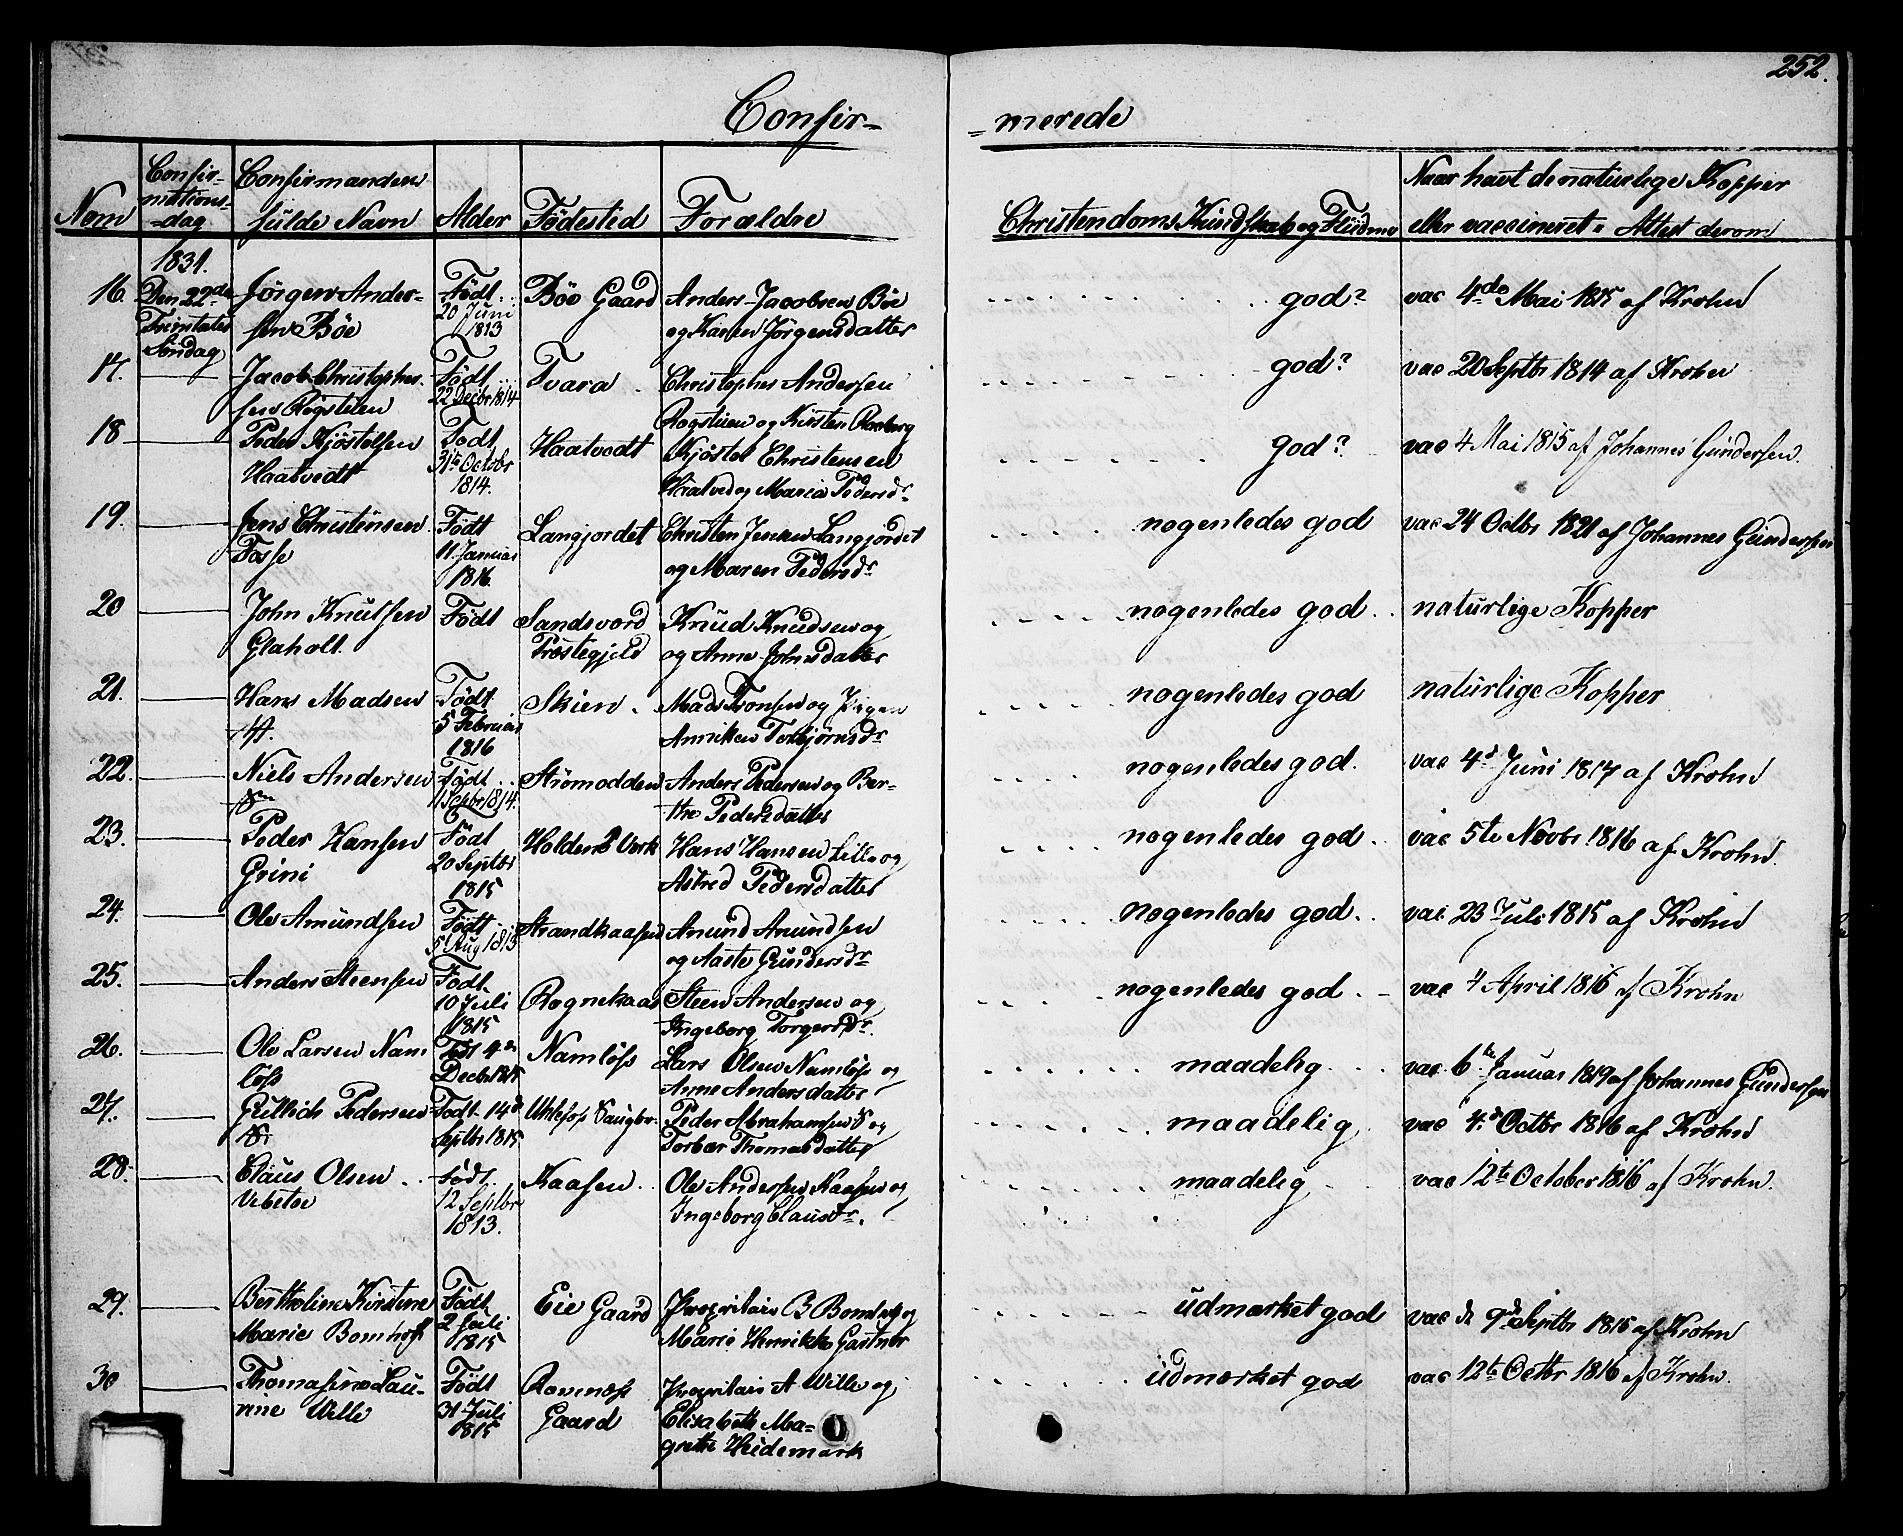 252.
Confir= =merede
Nom
Confir-
mations-
-dag
Confirmandens
fulde Navn
Alder
Födested
Forældre
Christendoms Kundskab og
Naar havt de naturlige Kopper
eller vaccineret. Attest derom
1831.
16. Den 22de Jörgen Ander- Födt Böe Gaard Anders Jacobsen Böe god? vac 4de Mai 1815 af Krohn
Trinitatis sen Böe 20 Juni og Karen Jörgensdatter
Söndag 1813
17. Jacob Christophersen Födt Tvara Christopher Andersen god? vac 20 Septbr 1814 af Krohn
22 Decbr 1814 og Kirsten
18 Peder Kjöstelsen Födt Haatvedt Kjöstel Christensen god? vac 4 Mai 1815 af Johannes Gundersen.
Haatvedt 31te Octobr Haatved og Maria Pedersdr
1814.
19. Jens Christensen Födt Langjordet Christen Jensen Langjordet nogenledes god vac 24 Octbr 1821 af Johannes Gundersen
Fosse 11 Januar og Maren Pedersdr
1816
20 John Knutsen Födt Sandsvord Knud Knudsen og nogenledes god naturlige Kopper
Glaholt Præstegjeld og Anne Johnsdatter
21. Hans Madsen Födt Skien Mads Tronsen og nogenledes god naturlige Kopper
5 Februar Anniken Torbjörnsdr
1816
22. Niels Andersen Födt Strömodden Anders Pedersen og Ber- nogenledes god. vac 4d Juni 1817 af Krohn
11 Sepbr 1814. the Pedersdatter
23. Peder Hansen Födt Holdens Verk Hans Hansen Lille og nogenledes god vac 5te Novbr 1816 af Krohn.
Grini 20 Septbr Astred Pedersdatter
1815
24. Ole Amundsen Födt Strandkaasen Amund Amundsen nogenledes god vac 23 Juli 1815 af Krohn
5 Aug 1813 og Aaste Gundersdr
25. Anders Steensen Födt Rognekaas Steen Andersen og nogenledes god vac 4 April 1816 af Krohn
10 Juli Ingeborg Torgersdr.
1815
26. Ole Larsen Nam- Födt 4de Namlöss Lars Olsen Namlöss og maadelig vac 6te Januar 1819 af Johannes Gundersen
löss Decbr 1815 Anne Andersdatter
27. Gullich Pedersen Födt 14d Uhlefos Peder Abrahamsen og maadelig vac 4d Octbr 1816 af Krohn
Septbr 1815 Torbær Thomasdatter
28. Claus Olsen Födt Kaasen Ole Andersen Kaasen og maadelig vac 12te October 1816 af Krohn.
Vebstöe 12 Septbr Ingeborg Clausdr.
1813.
29. Bertholine Kirstene Födt Eie Gaard Propritair B Bomhof og udmærket god vac d 9de Septbr 1815 af Krohn
Marie Bomhoff 2 Juli Marie Henrikke Gartner
1815
30 Thomasine Lau- Födt Romnæss Propritair A Wille og udmærket god vac 12te Octbr 1816 af Krohn.
rine Wille 31 Juli Gaard Elisabeth Ma-
1815 grethe Heidemark